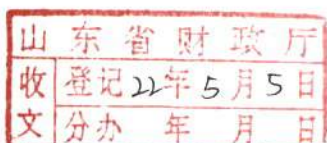 山东省财政厅
收文 登记22年5月5日
分办 年 月 日